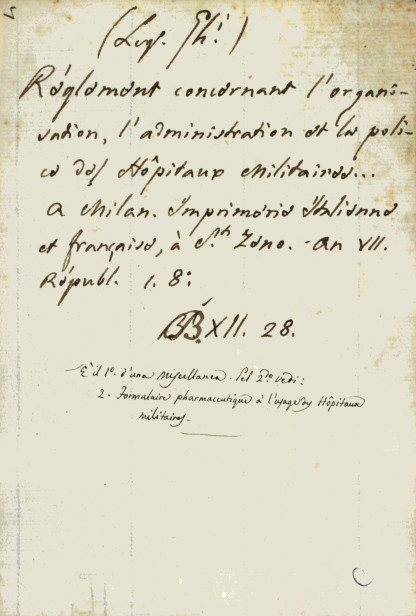 (Legs. Th.!)
Réglement concernant l'organi-
sation, l'administration et la poli-
ce des Hôpitaux Militaires...
A Milan. Imprimerie Italienne
et française, à St. Zeno. - An VII.
Républ. 1. 8:
BB. XII. 28.
È il 1º. d'una Miscellanea. Pel 2do vedi:
2. Formulaire pharmaceutique à l'usage des Hôpitaux
militaires.